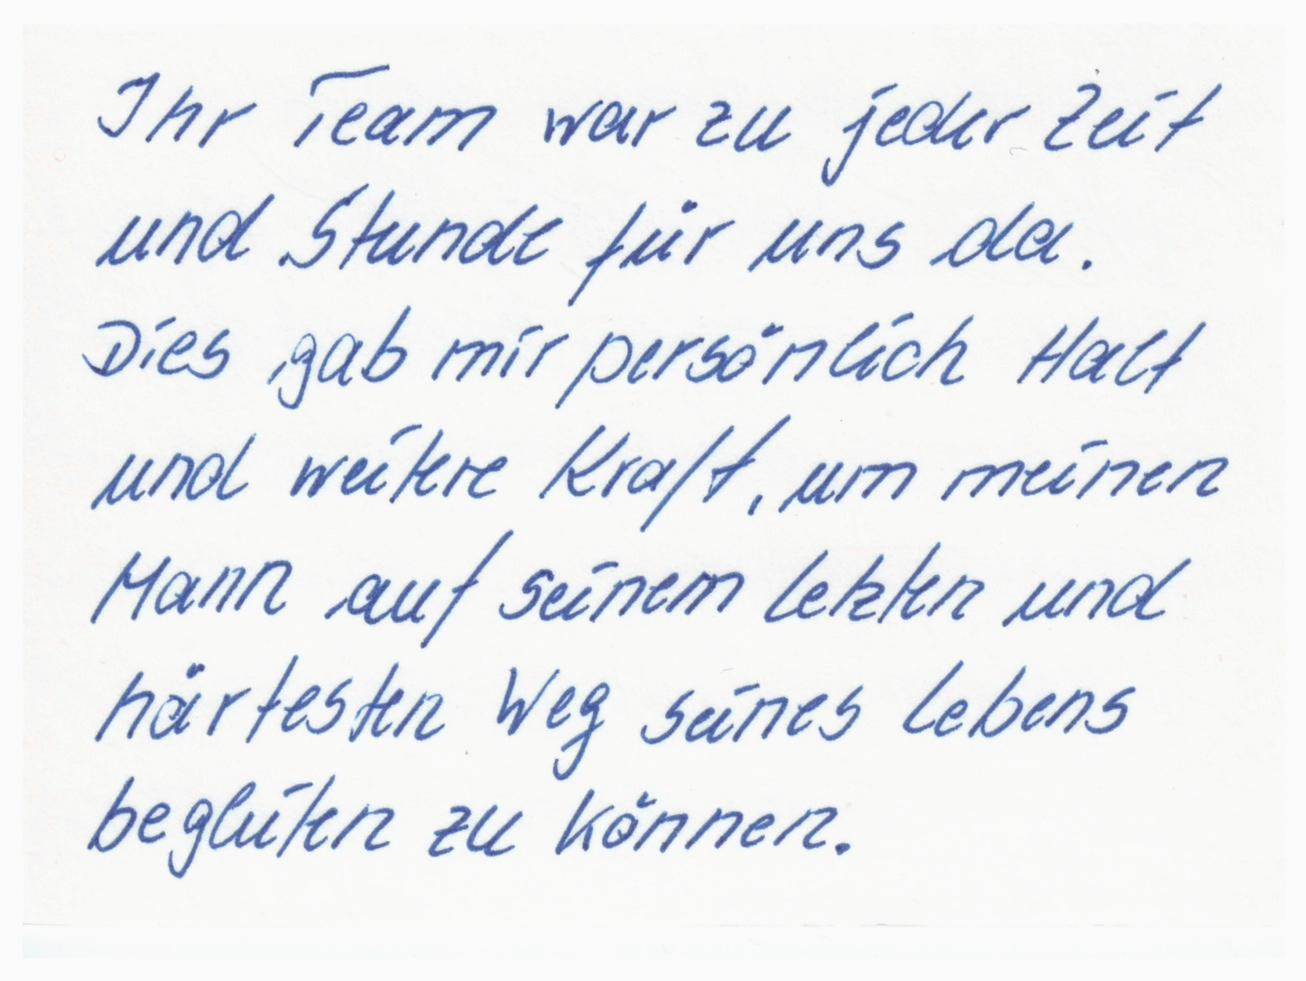 Ihr Team war zu jeder Zeit
und Stunde für uns da.
Dies gab mir persönlich Halt
und weitere Kraft, um meinen
Mann auf seinem letzten und
härtesten Weg seines Lebens
begleiten zu können.